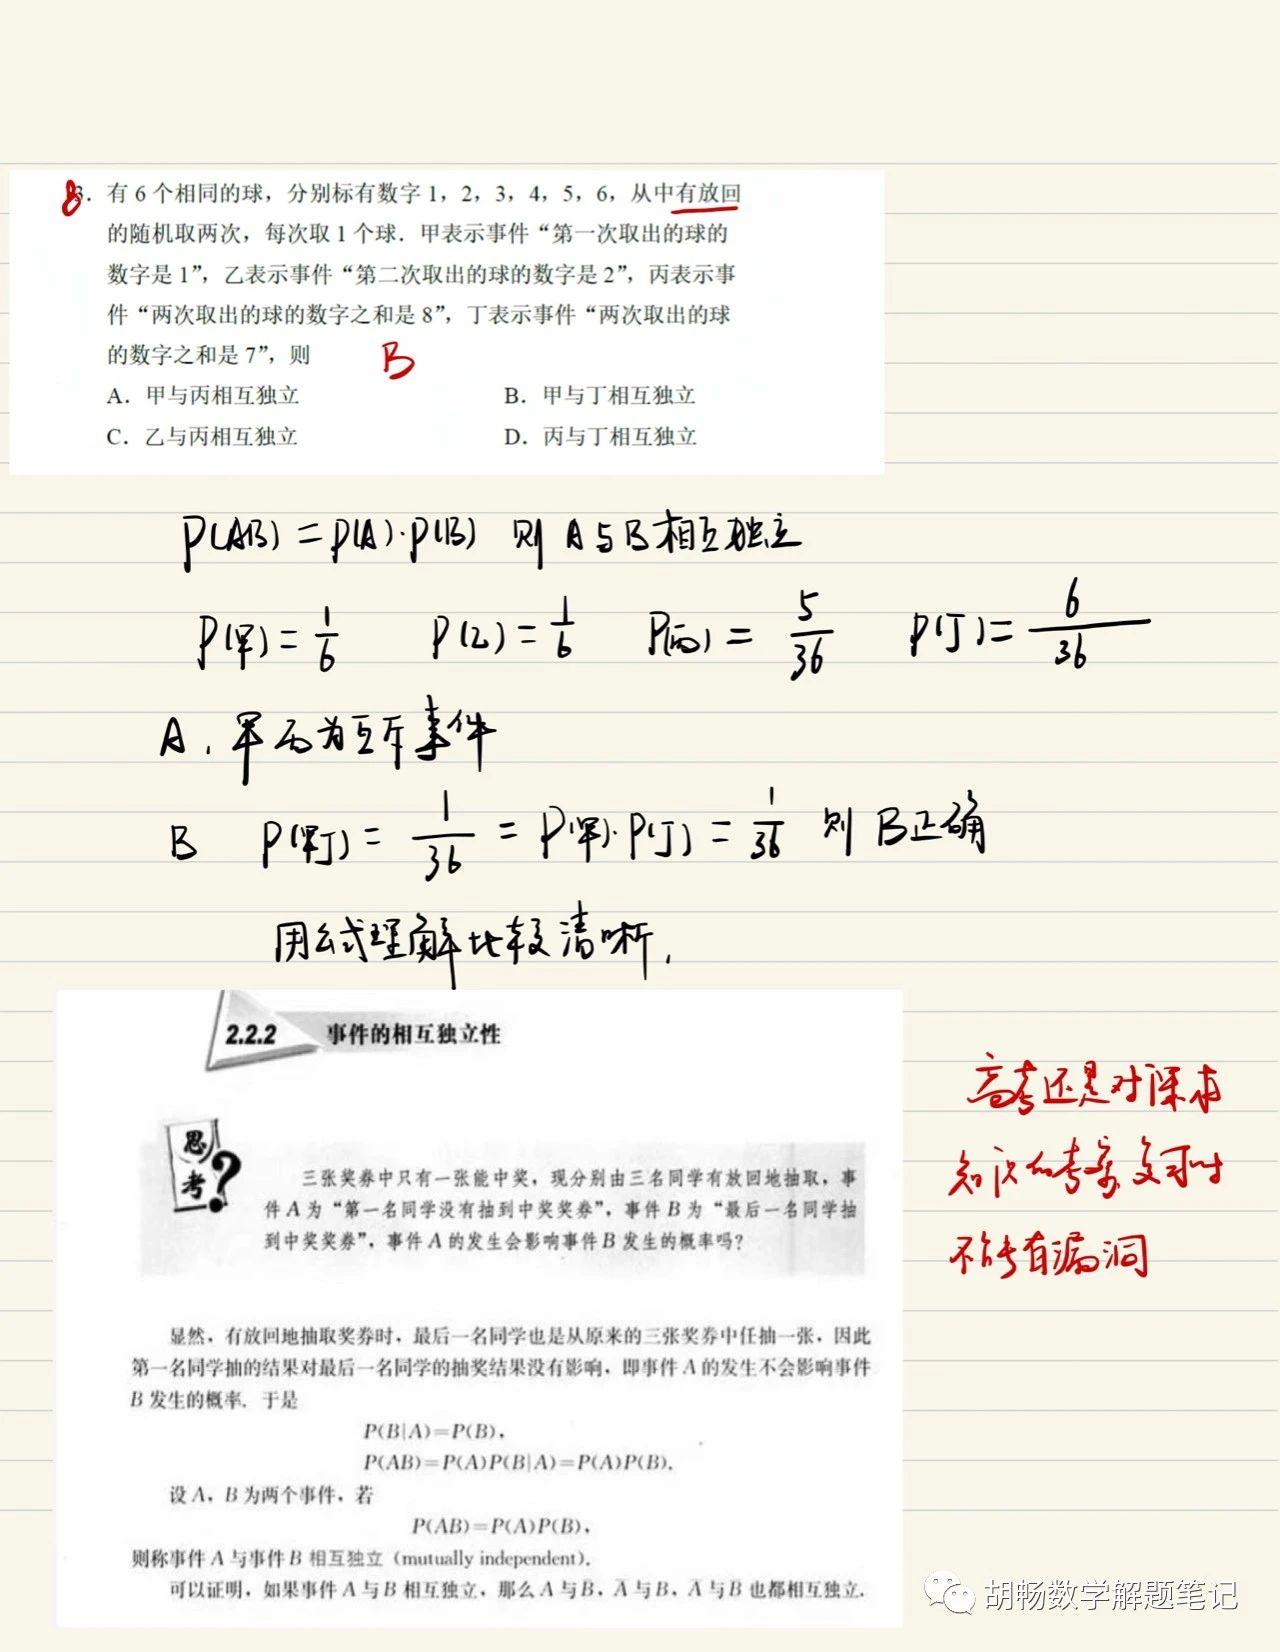 8. 有 6 个相同的球，分别标有数字 1，2，3，4，5，6，从中有放回
的随机取两次，每次取 1 个球．甲表示事件“第一次取出的球的
数字是 1”，乙表示事件“第二次取出的球的数字是 2”，丙表示事
件“两次取出的球的数字之和是 8”，丁表示事件“两次取出的球
的数字之和是 7”，则 B
A．甲与丙相互独立 B．甲与丁相互独立
C．乙与丙相互独立 D．丙与丁相互独立
P(AB)=P(A)·P(B) 则 A与B相互独立
P(甲)=1/6 P(乙)=1/6 P(丙)=5/36 P(丁)=6/36
A. 甲丙为互斥事件
B P(甲丁)=1/36=P(甲)·P(丁)=1/36 则 B正确
用公式理解比较清晰.
2.2.2 事件的相互独立性
思考?
三张奖券中只有一张能中奖，现分别由三名同学有放回地抽取，事
件 A 为“第一名同学没有抽到中奖奖券”，事件 B 为“最后一名同学抽
到中奖奖券”，事件 A 的发生会影响事件 B 发生的概率吗？
高考还是对课本
知识的考察 复习时
不能有漏洞
显然，有放回地抽取奖券时，最后一名同学也是从原来的三张奖券中任抽一张，因此
第一名同学抽的结果对最后一名同学的抽奖结果没有影响，即事件 A 的发生不会影响事件
B 发生的概率．于是
P(B|A)=P(B)，
P(AB)=P(A)P(B|A)=P(A)P(B)．
设 A，B 为两个事件，若
P(AB)=P(A)P(B)，
则称事件 A 与事件 B 相互独立（mutually independent）．
可以证明，如果事件 A 与 B 相互独立，那么 A 与 B̄，Ā 与 B，Ā 与 B̄ 也都相互独立．
胡畅数学解题笔记